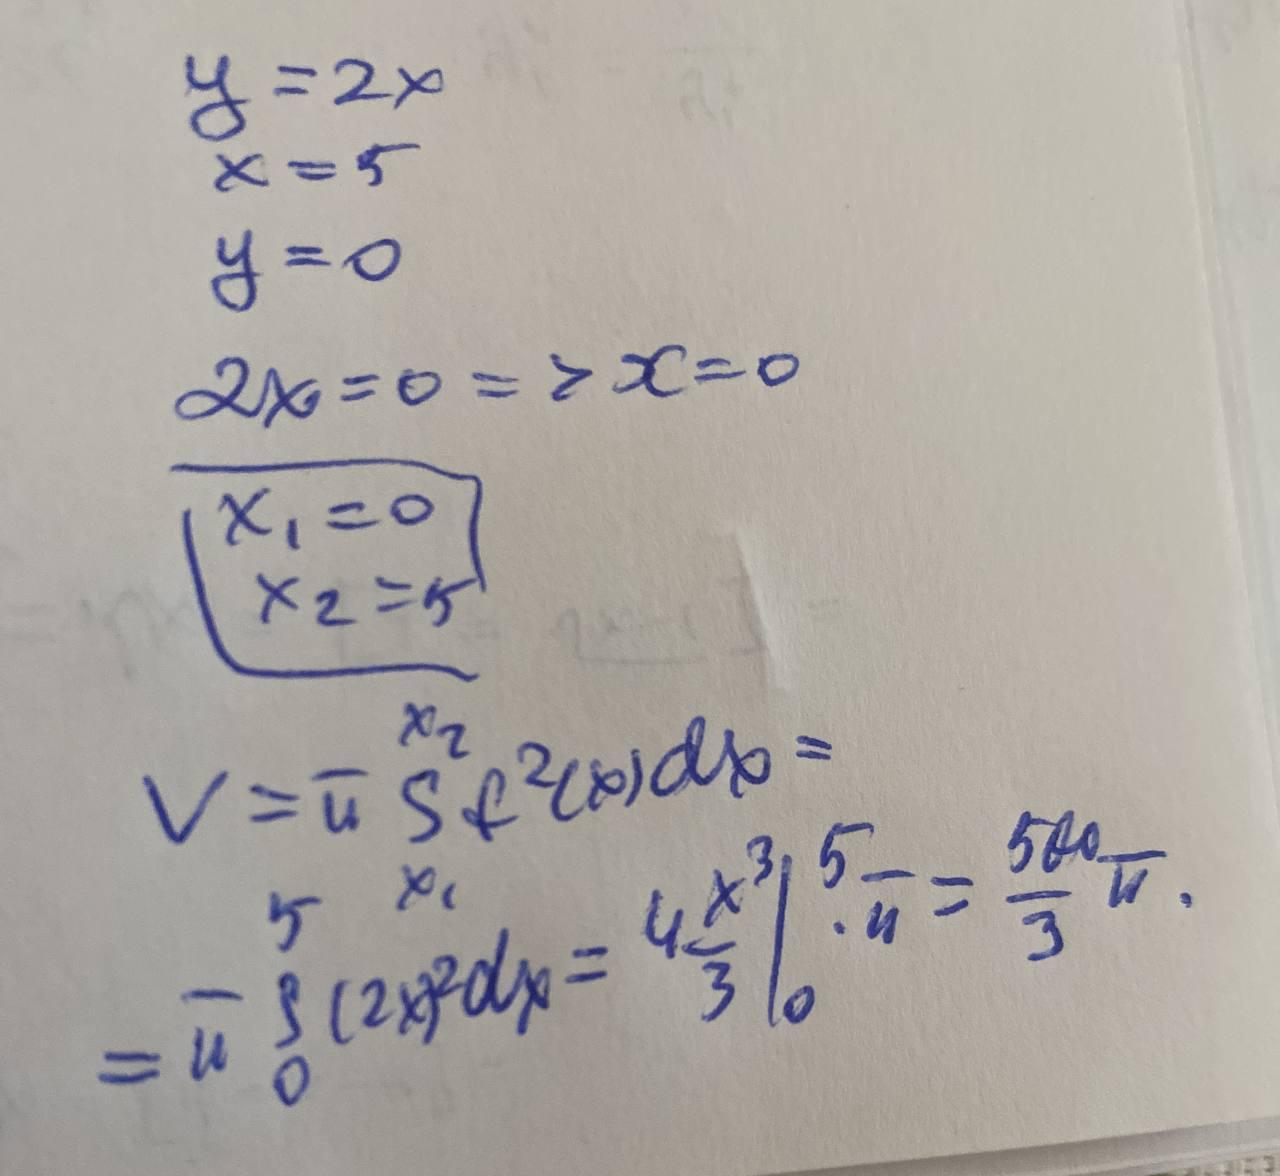 y = 2x
x = 5
y = 0
2x = 0 => x = 0
x₁ = 0
x₂ = 5
V = π ∫ₓ₁ˣ² f²(x) dx =
= π ∫₀⁵ (2x)² dx = 4 x³/3 |₀⁵ · π = 500/3 π.